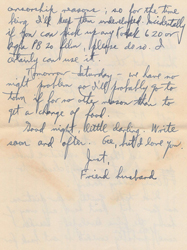 censorship reasons; so for the time
being I'll keep them undeveloped. Incidentally
if you can pick up any Kodak 620 or
Agfa PB 20 film, please do so. I
certainly can use it.
Tomorrow - Saturday - we have no
night problem so I'll probably go to
town if for no other reason than to
get a change of food.
Good night, little darling. Write
soon and often. Gee, but I'd love you.
Just,
Friend husband